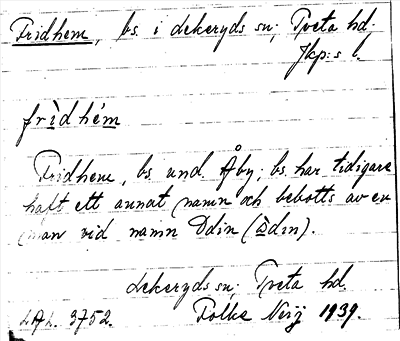 Fridhem, bs i Lekeryds sn; Tveta hd;
Jkp:s l.
frìdhém
Fridhem, bs und. Åby; bs. har tidigare
haft ett annat namn och bebotts av en
man vid namn Odin (òdɪn).
Lekeryds sn; Tveta hd.
LAL. 3752. Folke Neij 1939.